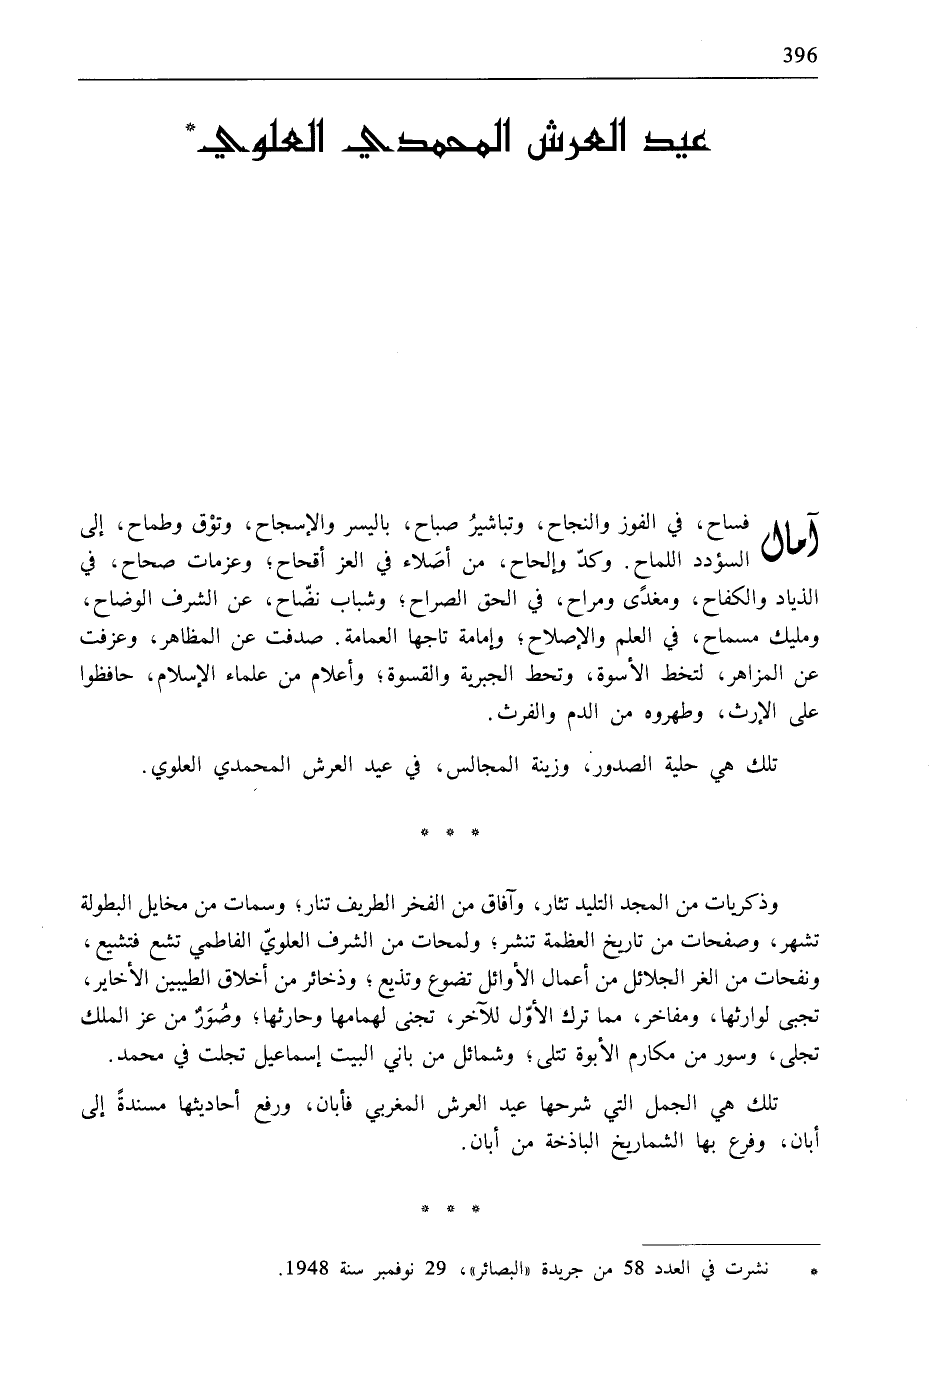 396
عيد العرش المحمدي العلوي*
آمال فساح، في الفوز والنجاح، وتباشيرُ صباح، باليسر والإسجاح، وتوْق وطماح، إلى
السؤدد اللماح. وكدّ وإلحاح، من أصَلاء في العز أقحاح؛ وعزمات صحاح، في
الذياد والكفاح، ومغدًى ومراح، في الحق الصراح؛ وشباب نضّاح، عن الشرف الوضاح،
ومليك مسماح، في العلم والإصلاح؛ وإمامة تاجها العمامة. صدفت عن المظاهر، وعزفت
عن المزاهر، لتخط الأسوة، وتحط الجبرية والقسوة؛ وأعلام من علماء الإسلام، حافظوا
على الإرث، وطهروه من الدم والفرث.
تلك هي حلية الصدور، وزينة المجالس، في عيد العرش المحمدي العلوي.
* * *
وذكريات من المجد التليد تثار، وآفاق من الفخر الطريف تنار؛ وسمات من مخايل البطولة
تشهر، وصفحات من تاريخ العظمة تنشر؛ ولمحات من الشرف العلويّ الفاطمي تشع فتشيع،
ونفحات من الغر الجلائل من أعمال الأوائل تضوع وتذيع؛ وذخائر من أخلاق الطيبين الأخاير،
تجبى لوارثها، ومفاخر، مما ترك الأوّل للآخر، تجنى لهمامها وحارثها؛ وصُوَرٌ من عز الملك
تجلى، وسور من مكارم الأبوة تتلى؛ وشمائل من باني البيت إسماعيل تجلت في محمد.
تلك هي الجمل التي شرحها عيد العرش المغربي فأبان، ورفع أحاديثها مسندةً إلى
أبان، وفرع بها الشماريخ الباذخة من أبان.
* * *
* نشرت في العدد 58 من جريدة «البصائر»، 29 نوفمبر سنة 1948.